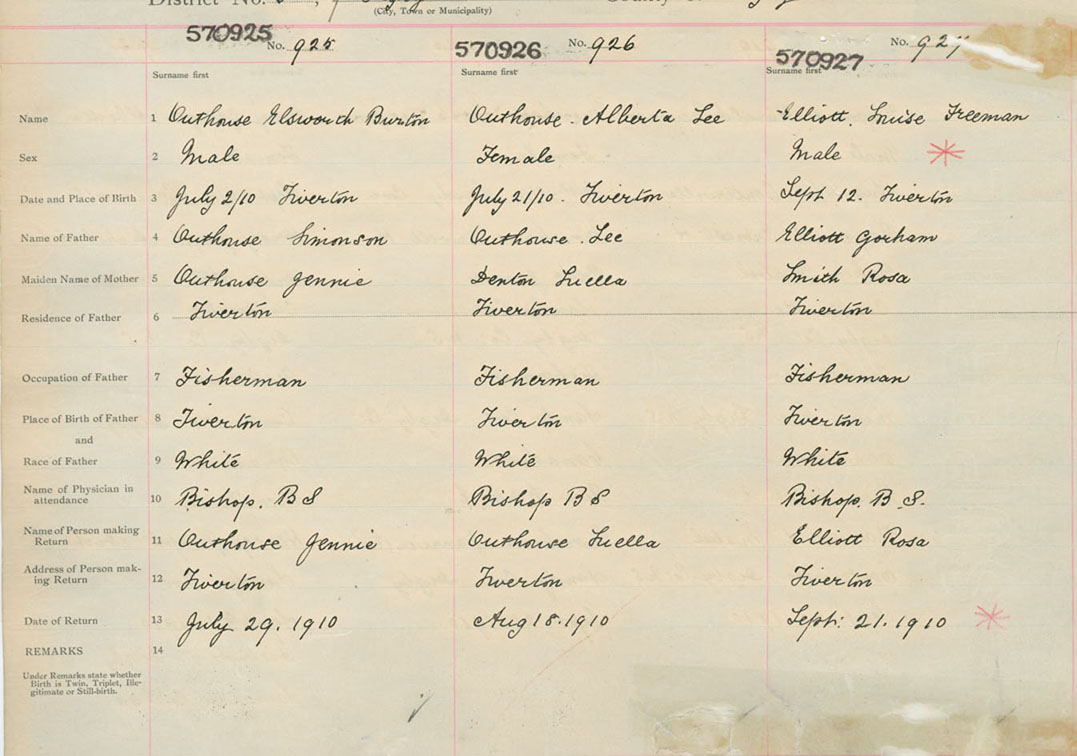 District No.
(City, Town or Municipality)
570925 No. 925 570926 No. 926 570927 No. 927
Surname first Surname first Surname first
Name 1 Outhouse Elsworth Burton Outhouse. Alberta Lee Elliott. Louise Freeman
Sex 2 Male Female Male
Date and Place of Birth 3 July 2/10 Tiverton July 21/10. Tiverton Sept 12. Tiverton
Name of Father 4 Outhouse Simonson Outhouse. Lee Elliott Gorham
Maiden Name of Mother 5 Outhouse Jennie Denton Luella Smith Rosa
Residence of Father 6 Tiverton Tiverton Tiverton
Occupation of Father 7 Fisherman Fisherman Fisherman
Place of Birth of Father 8 Tiverton Tiverton Tiverton
and
Race of Father 9 White White White
Name of Physician in
attendance 10 Bishop. B S Bishop B S Bishop. B. S.
Name of Person making
Return 11 Outhouse Jennie Outhouse Luella Elliott Rosa
Address of Person mak-
ing Return 12 Tiverton Tiverton Tiverton
Date of Return 13 July 29. 1910 Aug 18. 1910 Sept: 21. 1910
REMARKS 14
Under Remarks state whether
Birth is Twin, Triplet, Ille-
gitimate or Still-birth.